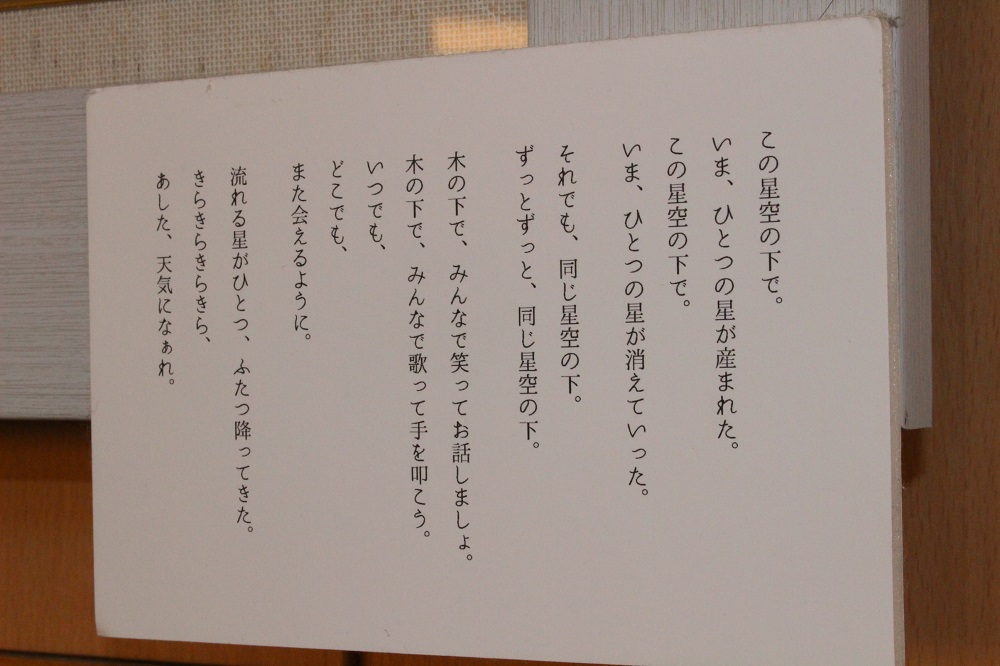 この星空の下で。
いま、ひとつの星が産まれた。
この星空の下で。
いま、ひとつの星が消えていった。
それでも、同じ星空の下。
ずっとずっと、同じ星空の下。
木の下で、みんなで笑ってお話しましょ。
木の下で、みんなで歌って手を叩こう。
いつでも、
どこでも、
また会えるように。
流れる星がひとつ、ふたつ降ってきた。
きらきらきらきら、
あした、天気になぁれ。